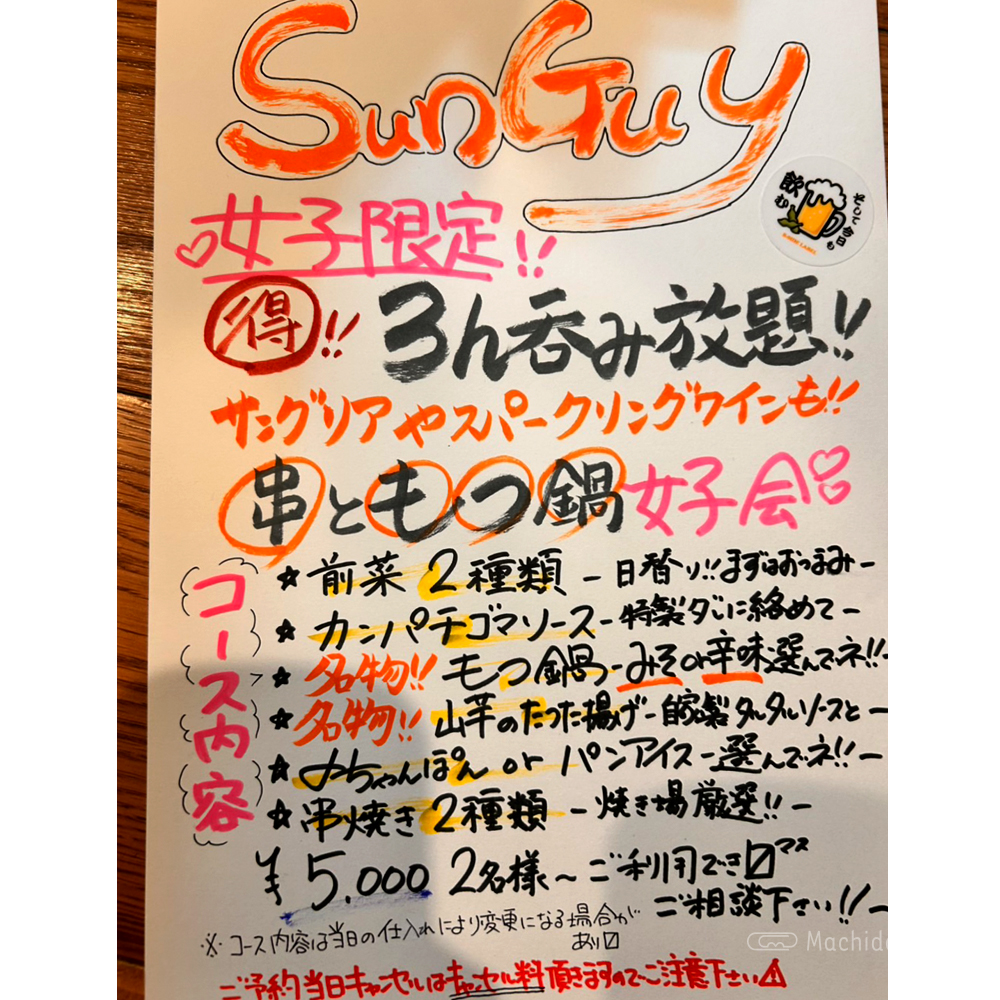 SunGuy
女子限定!!
得!! 3h呑み放題!!
サングリアやスパークリングワインも!!
串ともつ鍋女子会
コース内容
☆ 前菜2種類 - 日替り!!まずはおつまみ -
☆ カンパチゴマソース - 特製ダレに絡めて -
☆ 名物!! もつ鍋 - みそor辛味選んでネ!! -
☆ 名物!! 山芋のたつた揚げ - 自家製タルタルソースと -
☆ ちゃんぽん or パンアイス - 選んでネ!! -
☆ 串焼き2種類 - 焼き場厳選!! -
¥5.000 2名様~ご利用でき〼マス
ご相談下さい!! -
※ コース内容は当日の仕入れにより変更になる場合が
あり〼
ご予約当日キャンセルはキャンセル料頂きますのでご注意下さい⚠
飲む
Machida